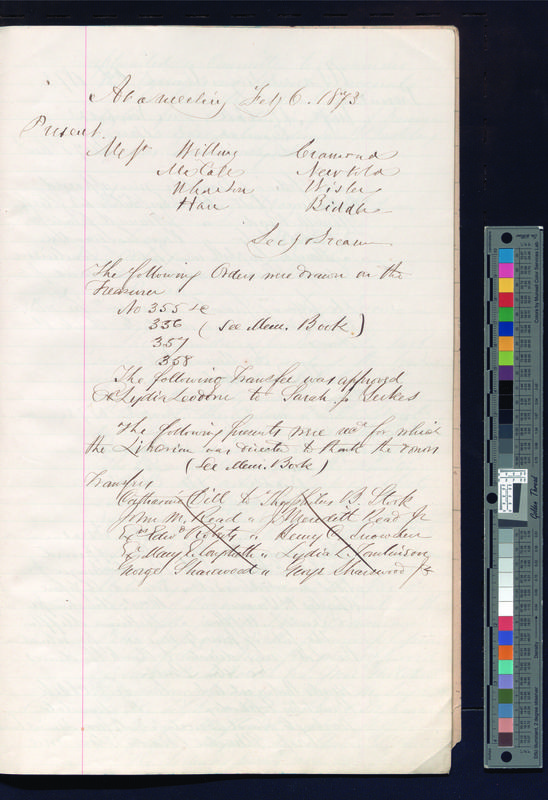 At a meeting Feby 6. 1873
Present
Messrs Willing Cramond
McCall Newbold
Wharton Wister
Hare Biddle
Secy & Treasurer
The following Orders were drawn on the
Treasurer
No 355
356 (See Mem. Book.)
357
358
The following Transfer was approved
Ex Lydia to Sarah J.
The following presents were recd for which
the Librarian was directed to thank the donors
(See Mem. Book)
Transfers
Catharine Dill to Theophilus B. Stork
John M. Read " J Meredith Read Jr
Exr Edwd Roberts " Henry Snowden
Ex Mary " Lydia L. Tomlinson
George Sharswood " George Sharswood Jr